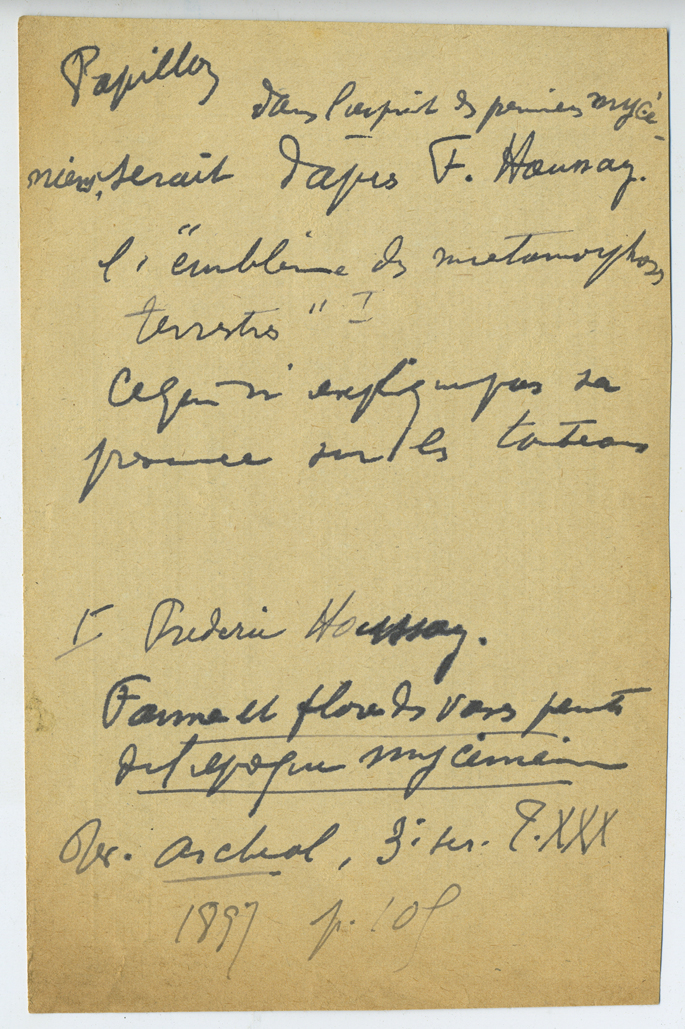 Papillon
dans l'esprit des premiers mycé-
niens, serait d'après F. Houssay.
l'"emblème des métamorphoses
terrestres" I
Ce qui n'explique pas sa
présence sur les
I Frédéric Houssay.
Faune et flore des vases peints
de l'époque mycénienne
Rev. archéol, 3e ser. T. XXX
1897 p. 105